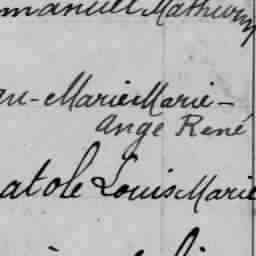 manuel Mathurin
an-Marie Marie-
Ange René
atole Louis Marie